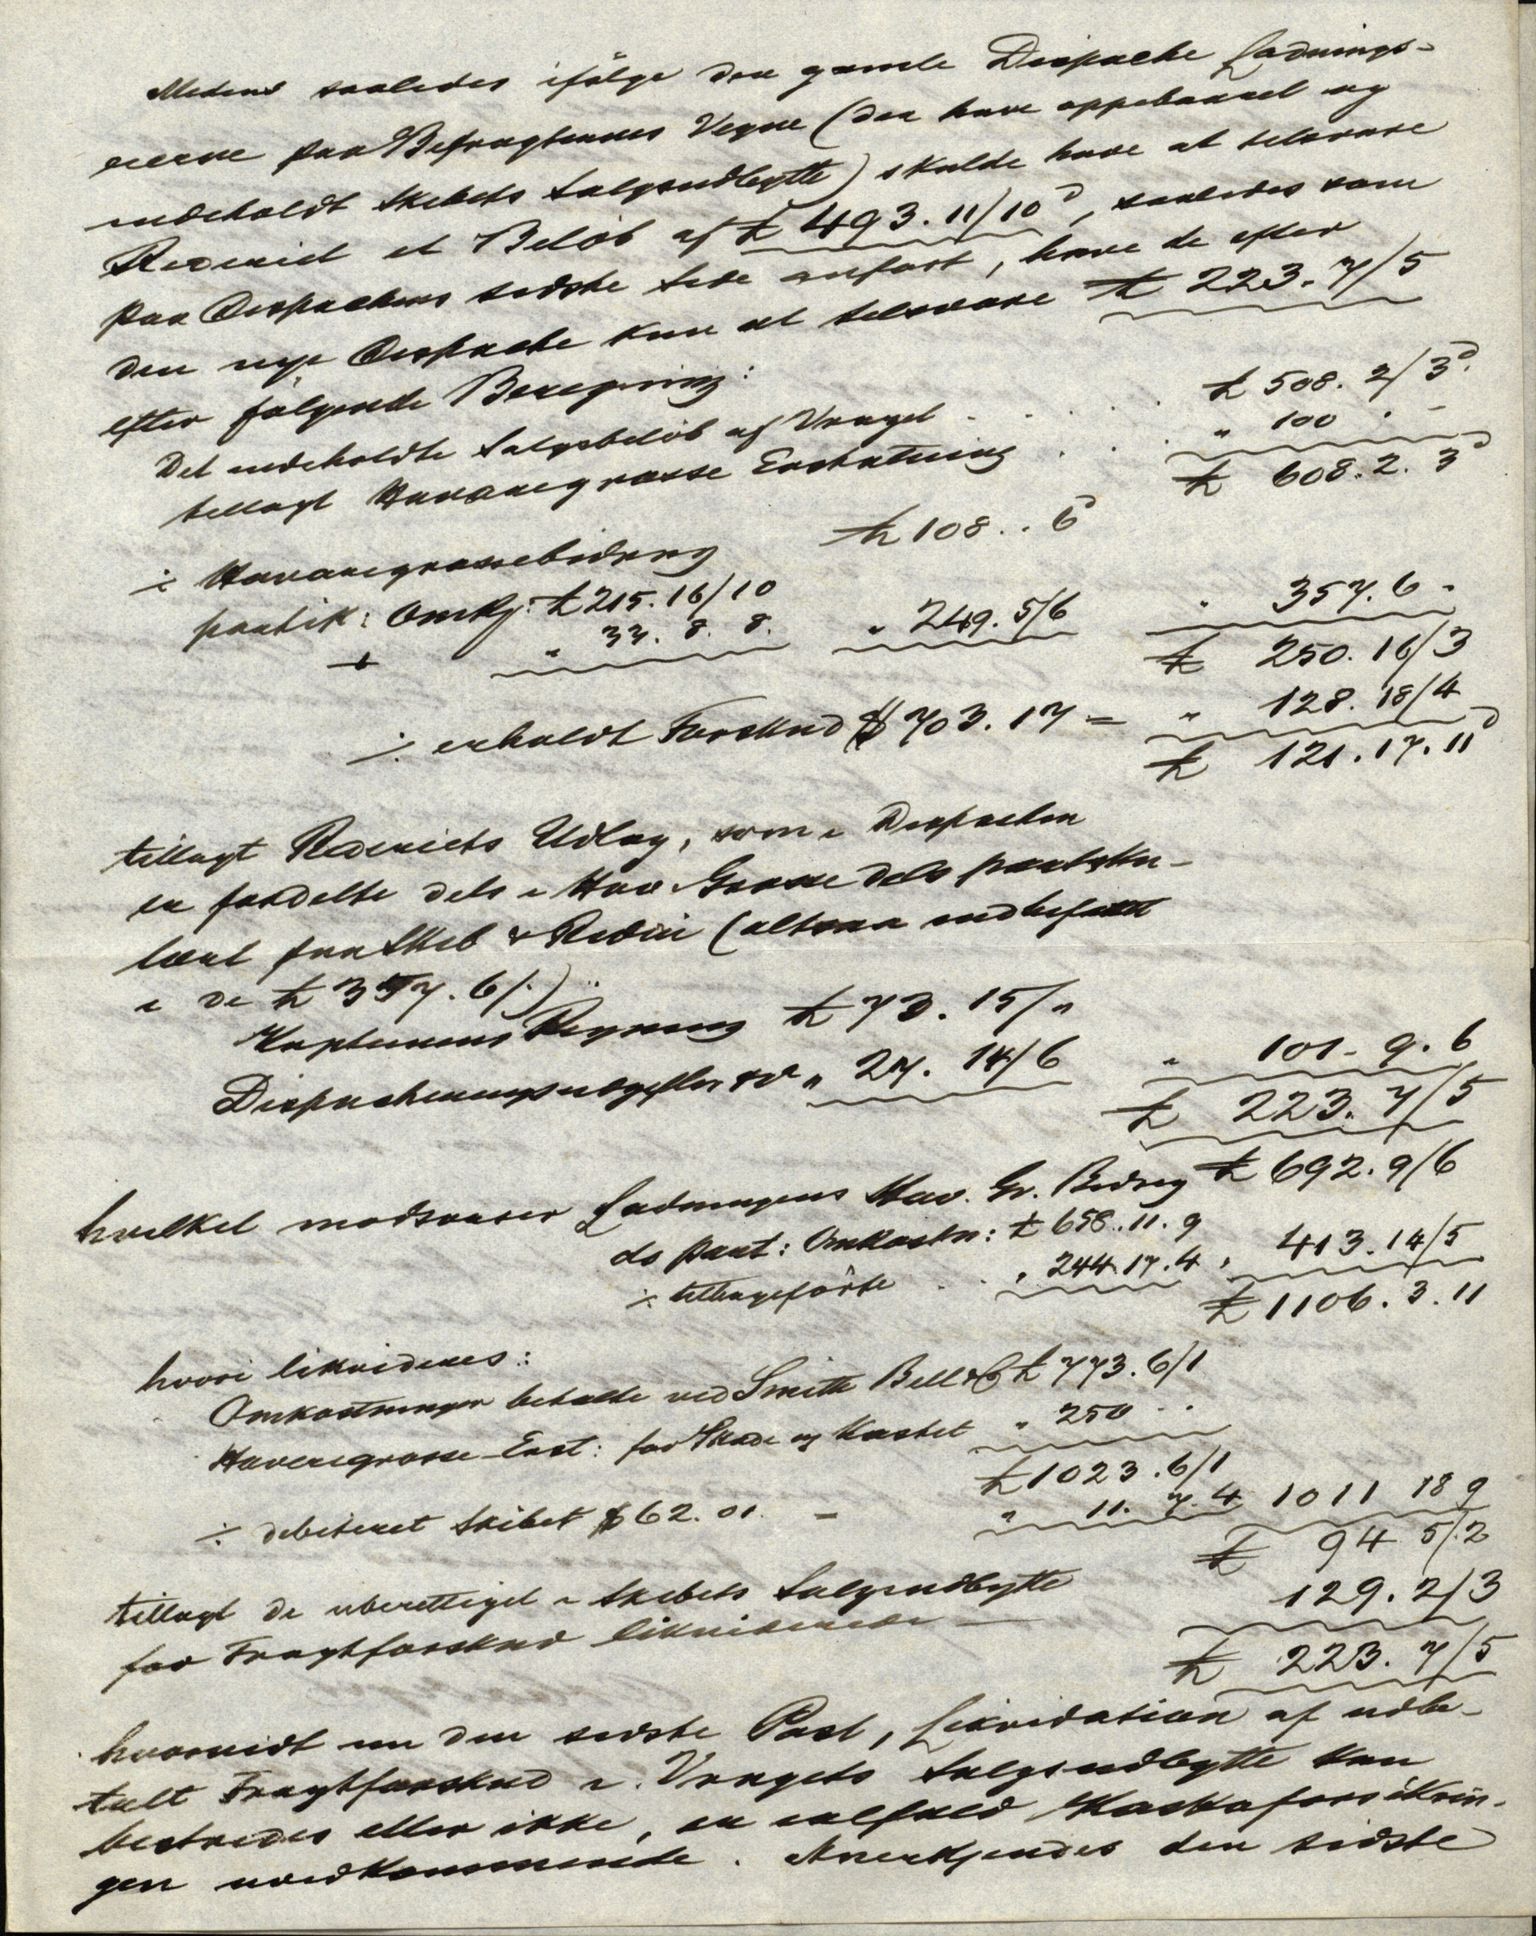 Medens saaledes ifølge den gamle Dispache Ladnings-
eierne paa Befragternes Vegne (der have oppebaaret og
indeholdt Skibets Salgsudbytte) skulde have at tilsvare
Rederiet et Beløb af £ 493. 11/10 d, saaledes som
paa Dispachens sidste Side anført, have de efter
den nye Dispache kun at tilsvare £ 223. 7/5
efter følgende Beregning:
Det indeholdte Salgsbeløb af Vraget . . . . . £ 508. 2/3 d.
tillagt Havarigrosse Erstatning . . . " 100 . -
£ 608. 2. 3 d
÷ Havarigrossebidrag £ 108 . . 6 d
partik: Omkg. £ 215. 16/10
+ " 33. 8. 8. " 249. 5/6 " 357. 6 -
£ 250. 16/3
÷ erholdt Forskud $ 703. 17 = " 128. 18/4
£ 121. 17. 11 d
tillagt Rederiets Udlæg, som i Dispachen
er fordelte dels i Hav. Grosse dels partiku-
lært paa Skib & Rederi (altsaa indbefattet
i de £ 357. 6/.)
Kapteinens Regning £ 73. 15/"
Dispacheringsudgifter &c " 27. 14/6 " 101. 9. 6
£ 223. 7/5
hvilket modsvarer Ladningens Hav. Gr. Bidrag £ 692. 9/6
do part: Omkostn: £ 658. 11. 9
÷ tilbageførte . . " 244. 17. 4 " 413. 14/5
£ 1106. 3. 11
hvori likvideres:
Omkostninger betalte ved Smith Bell & Co £ 773. 6/1
Havarigrosse-Erst: for Skade og Kastet " 250 . .
£ 1023. 6/1
÷ debiteret Skibet $ 62. 01. = " 11. 7. 4 1011 18 9
£ 94 5/2
tillagt de uberettiget i Skibets Salgsudbytte
for Fragtforskud likviderede — 129. 2/3
£ 223. 7/5
hvorvidt nu den sidste Post, Likvidation af udbe-
talt Fragtforskud i Vragets Salgsudbytte kan
bestrides eller ikke, er ialfald Kaskoforsikrin-
gen uvedkommende. Anerkjendes den sidste